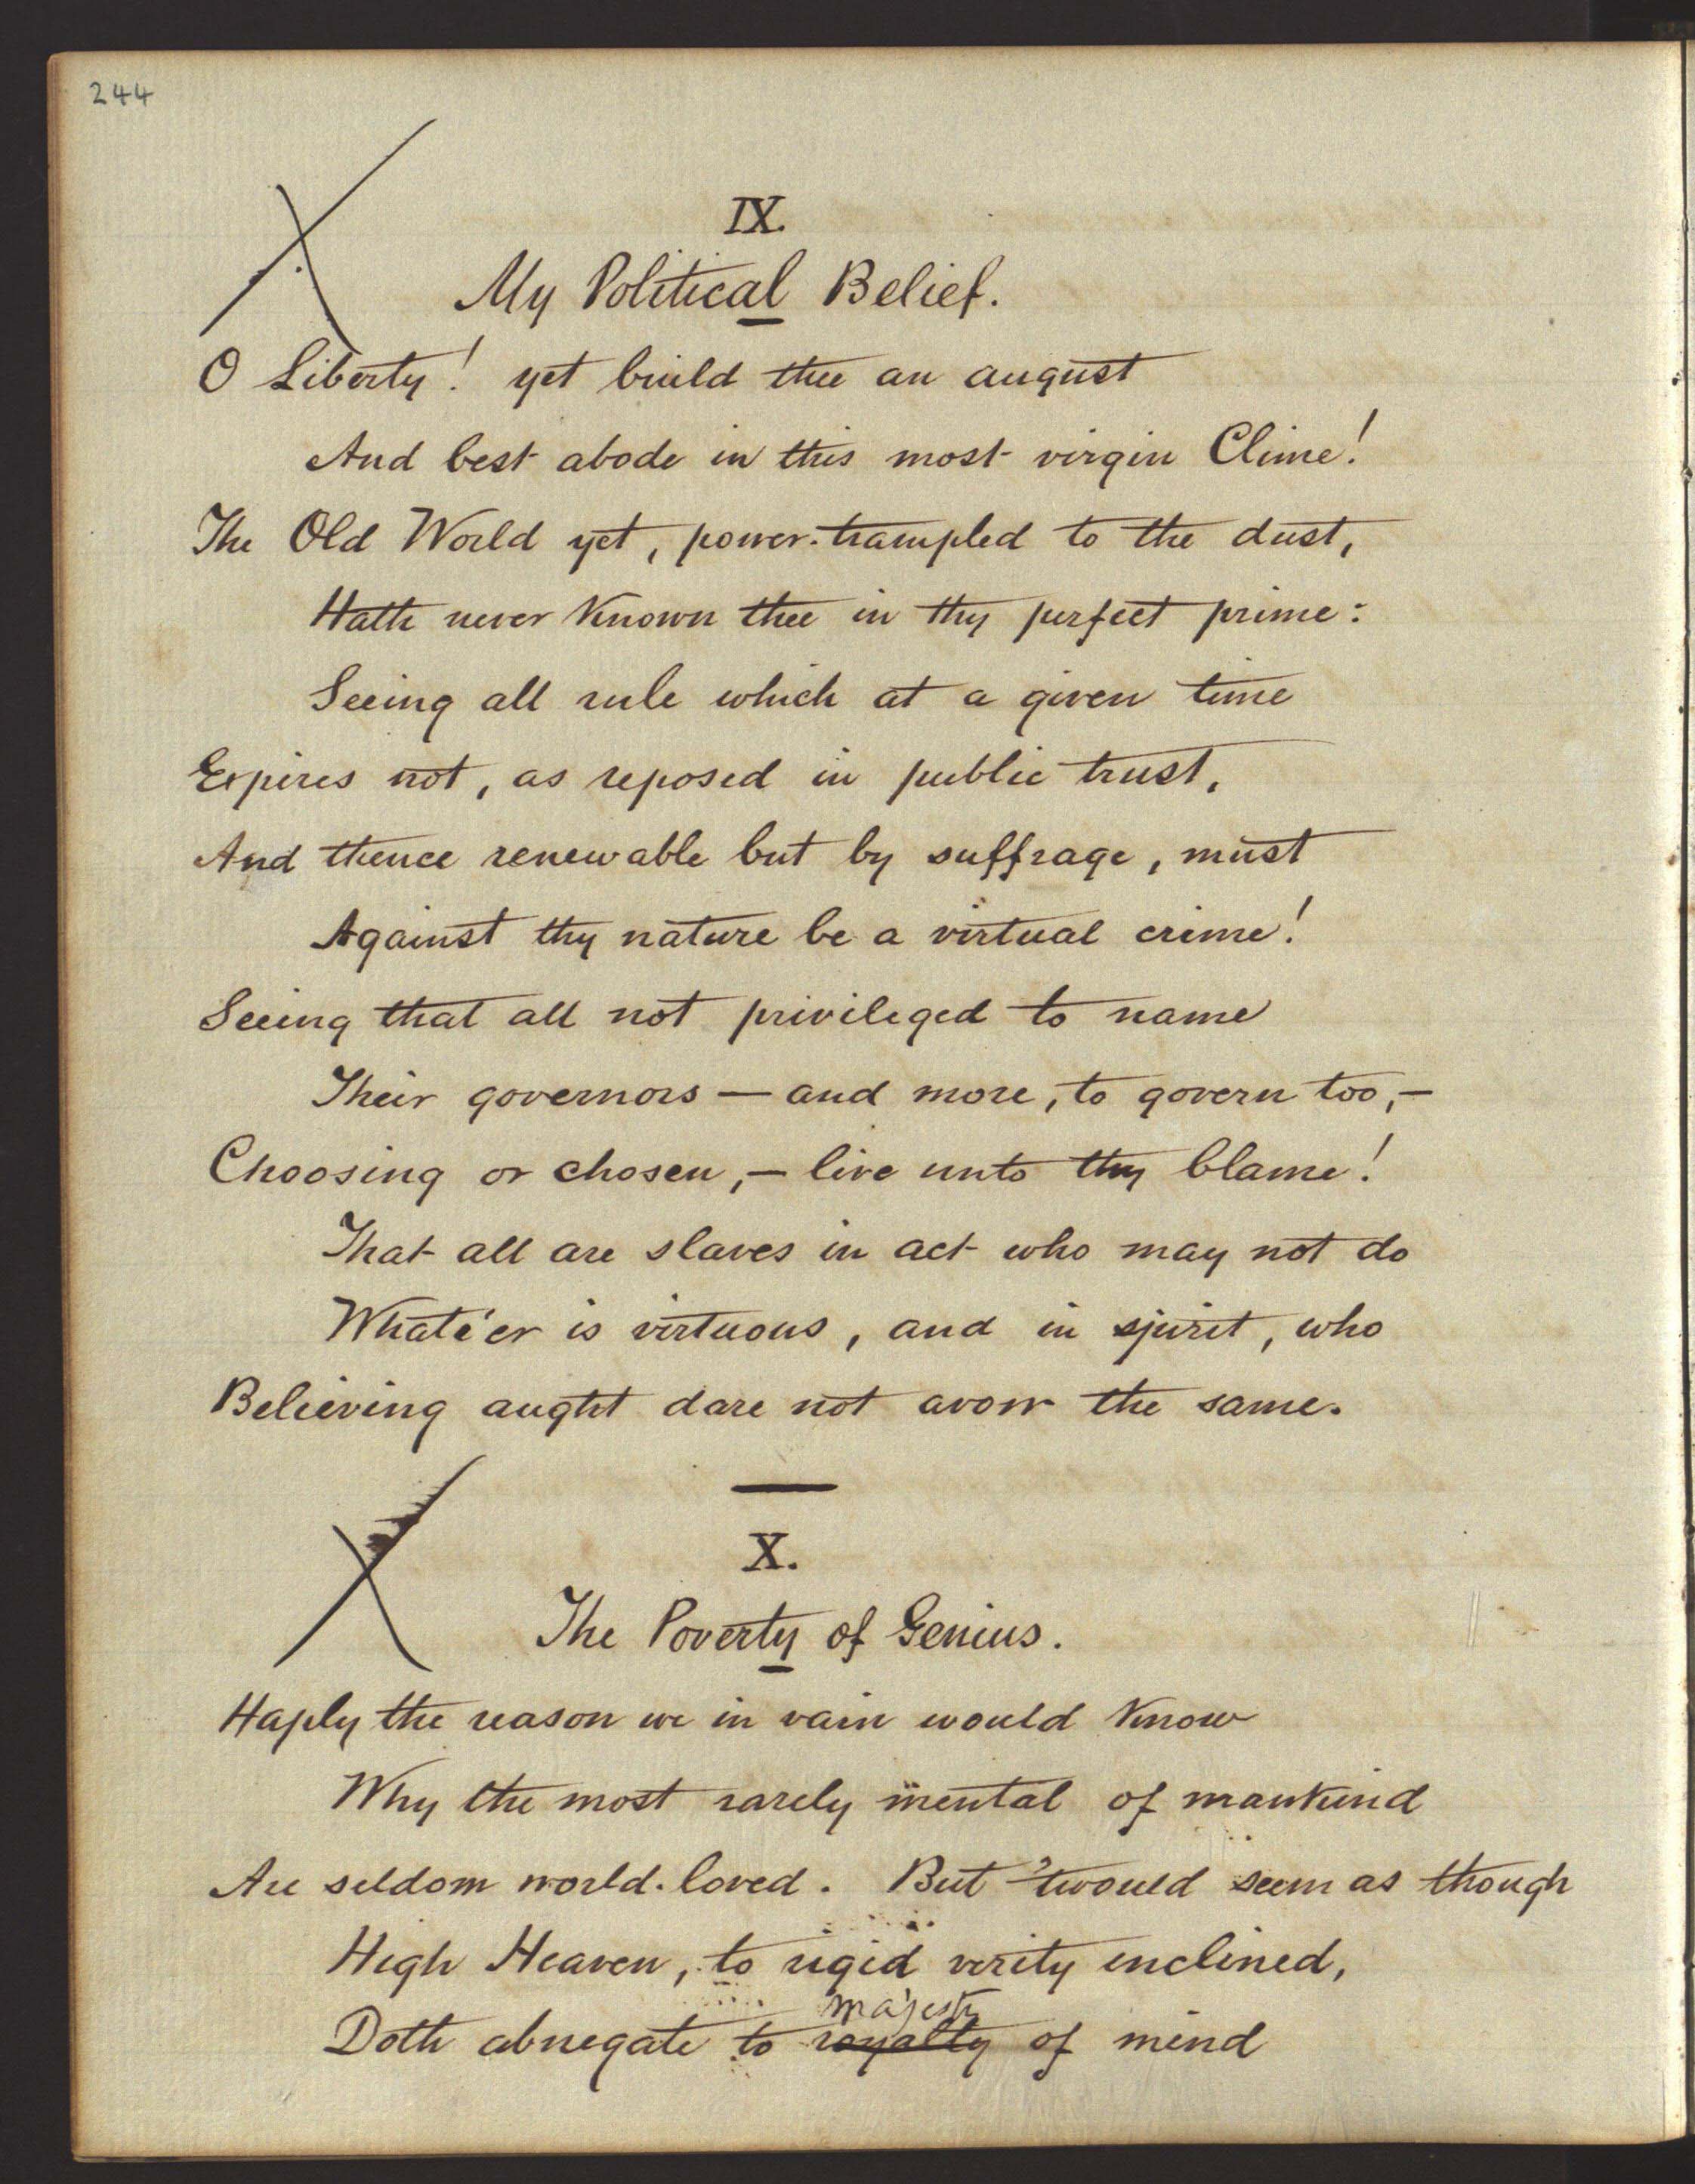 244
IX.
My Political Belief.
O Liberty! yet build thee an august
And best abode in this most virgin Clime!
The Old World yet, power-trampled to the dust,
Hath never known thee in thy perfect prime:
Seeing all rule which at a given time
Expires not, as reposed in public trust,
And thence renewable but by suffrage, must
Against thy nature be a virtual crime!
Seeing that all not privileged to name
Their governors — and more, to govern too, —
Choosing or chosen, — live unto thy blame!
That all are slaves in act who may not do
Whate'er is virtuous, and in spirit, who
Believing aught dare not avow the same.
X.
The Poverty of Genius.
Haply the reason we in vain would know
Why the most rarely mental of mankind
Are seldom world-loved. But 'twould seem as though
High Heaven, to rigid verity inclined,
majesty
Doth abnegate to royalty of mind